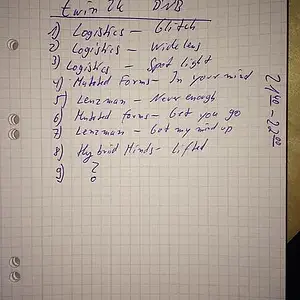 twin 24 DNB
1) Logistics - Glitch
2) Logistics - Wide lens
3) Logistics - Spot light
4) Mutated Forms - In your mind
5) Lenzman - Never enough
6) Mutated forms - Get you go
7) Lenzman - Got my mind up
8) Hybrid Minds - Lifted
9) ?
21 00 - 22 00